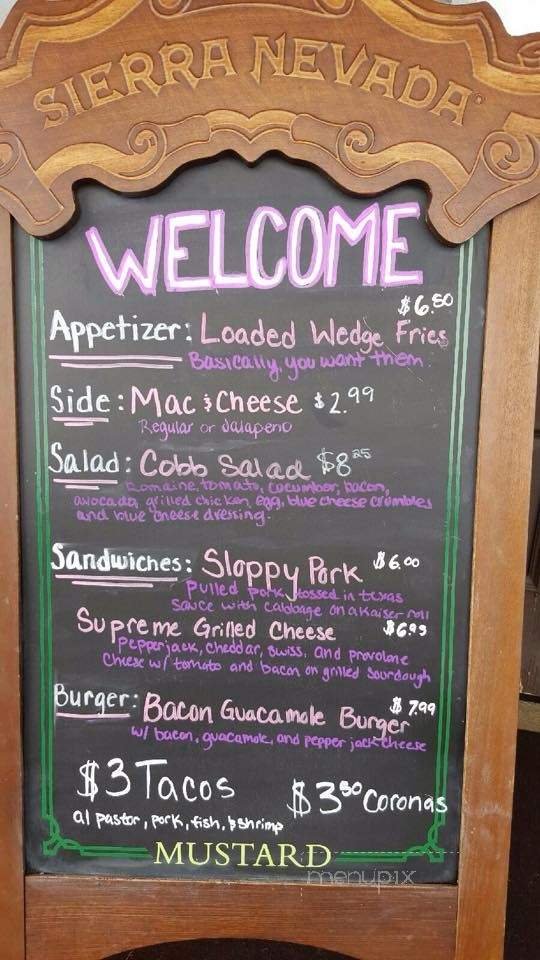 SIERRA NEVADA®
WELCOME
$6.50
Appetizer: Loaded Wedge Fries
Basically, you want them.
Side: Mac & Cheese $2.99
Regular or Jalapeno
Salad: Cobb Salad $8.25
Romaine, tomato, cucumber, bacon,
avocado, grilled chicken, egg, blue cheese crumbles
and blue cheese dressing.
Sandwiches: Sloppy Pork $6.00
Pulled pork tossed in texas
sauce with cabbage on a Kaiser roll
Supreme Grilled Cheese $6.95
Pepperjack, cheddar, swiss, and provolone
cheese w/ tomato and bacon on grilled sourdough
Burger: Bacon Guacamole Burger $7.99
w/ bacon, guacamole, and pepper jack cheese
$3 Tacos $3.50 Coronas
al pastor, pork, fish, & shrimp
MUSTARD
menupix